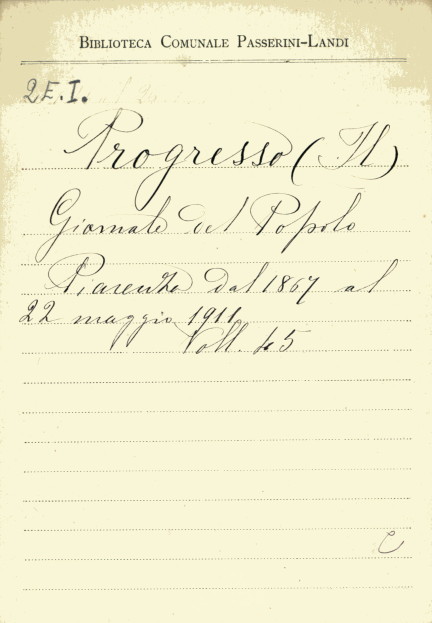 BIBLIOTECA COMUNALE PASSERINI-LANDI
2E.I.
Progresso (Il)
Giornale del Popolo
Piacenza dal 1867 al
22 maggio 1911
Voll. 45
C